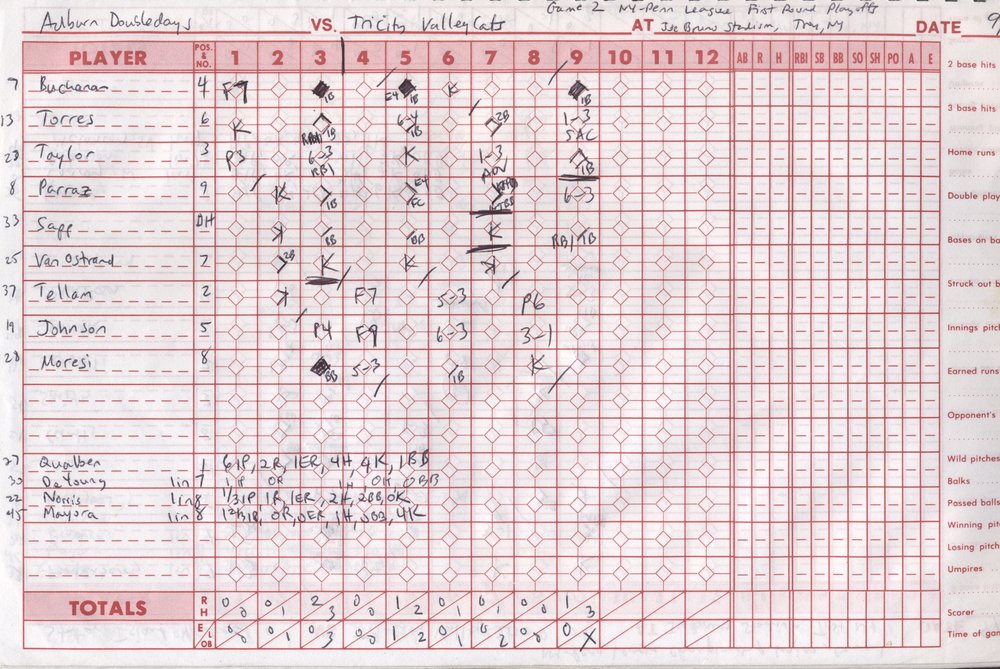 Game 2 NY-Penn League First Round Playoffs
Auburn Doubledays VS. Tricity ValleyCats AT Joe Bruno Stadium, Troy, NY DATE 9/
PLAYER POS. & NO. 1 2 3 4 5 6 7 8 9 10 11 12 AB R H RBI SB BB SO SH PO A E
2 base hits
7 Buchanan 4 F7 1B E4 1B K 1B
3 base hits
13 Torres 6 K RBI 1B 6-4 1B 2B 1-3 SAC
23 Taylor 3 P3 6-3 RBI K 1-3 1B
Home runs
8 Parraz 9 K 1B E4 FC IBB 6-3
Double play
33 Sapp DH K BB BB K RBI 1B
Bases on ba
25 Van Ostrand 7 2B K K K
37 Tellam 2 K F7 5-3 P6
Struck out b
19 Johnson 5 P4 F9 6-3 3-1
Innings pitc
28 Moresi 8 BB 5-3 1B K
Earned runs
Opponent's
27 Qualben 1 6IP, 2R, 1ER, 4H, 4K, 1BB
Wild pitches
30 DeYoung 1in7 1IP 0R 1H, 0K, 0BB
Balks
22 Norris 1in8 1/3IP, 1R, 1ER, 2H, 2BB, 0K
Passed balls
45 Mayora 1in8 1 2/3IP, 0R, 0ER, 1H, 0BB, 4K
Winning pit
Losing pitch
Umpires
TOTALS R H 0/0 0/1 2/3 0/0 1/2 0/1 0/1 0/0 1/3
Scorer
E LOB 0/0 0/1 0/3 0/0 1/2 0/1 0/2 0/0 0/X
Time of gam